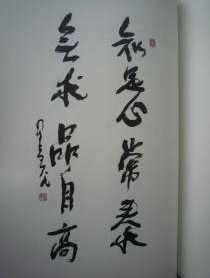 知足心常泰
无求品自高